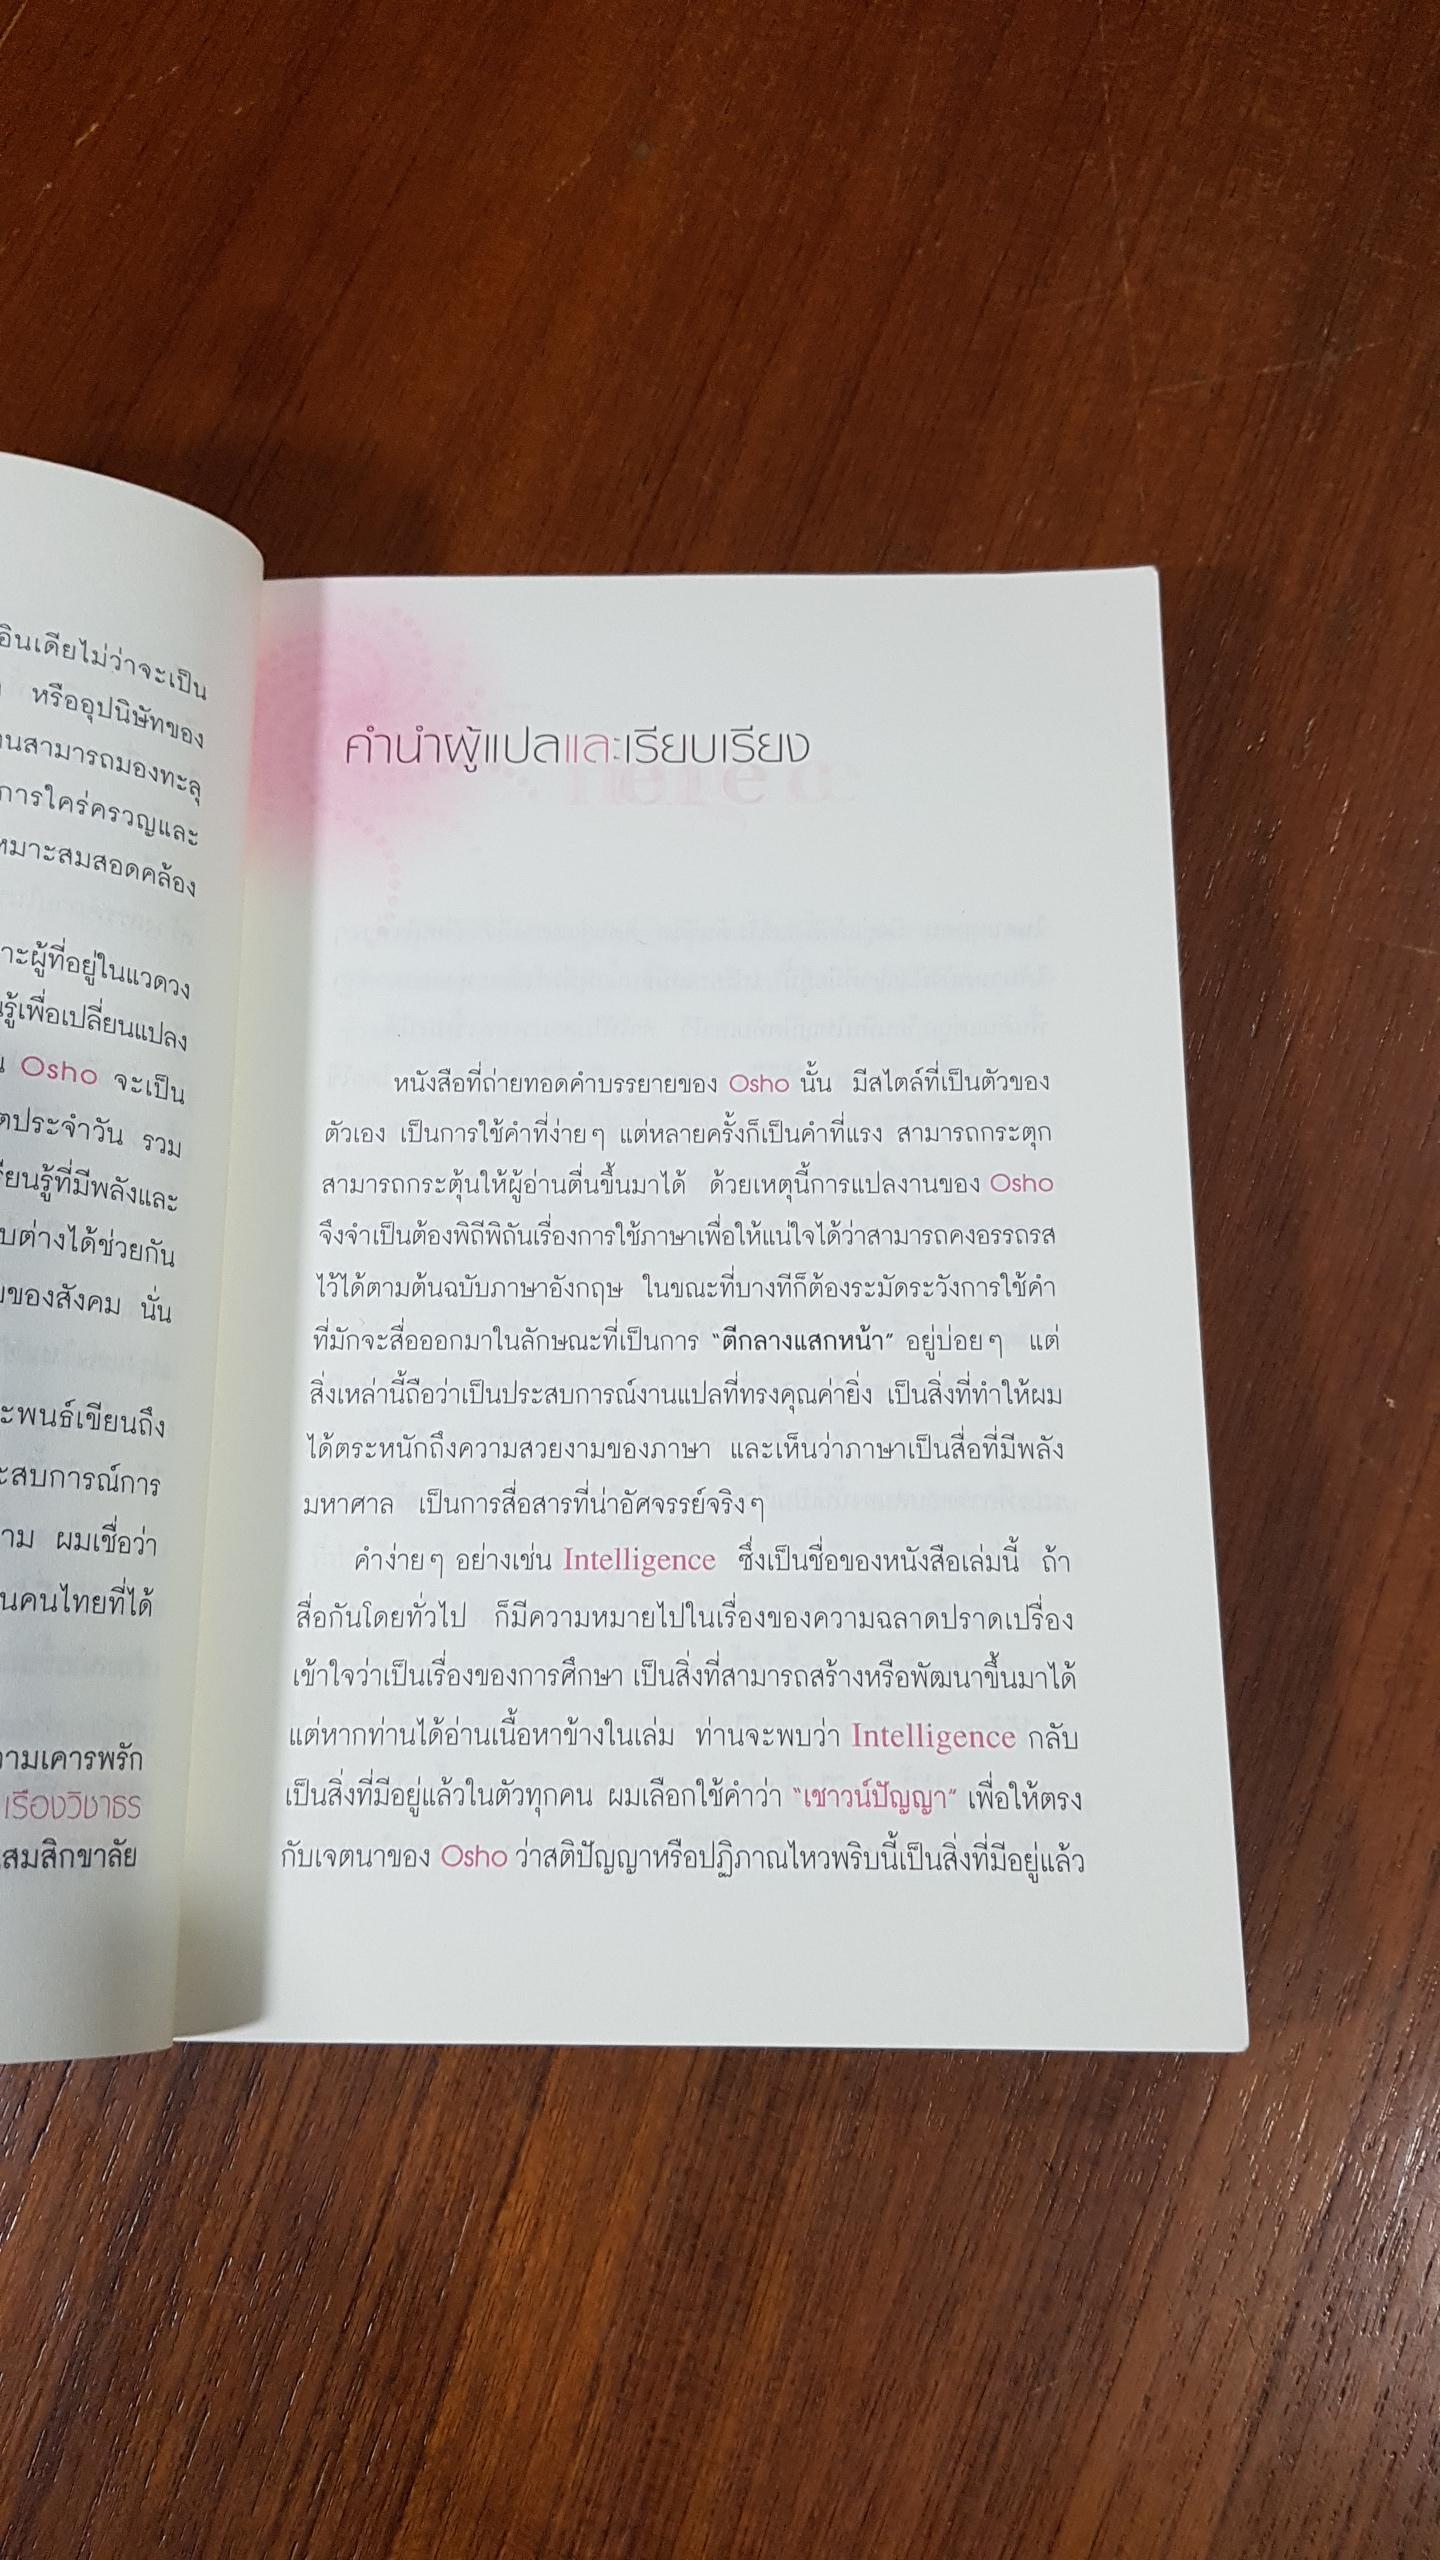 อินเดียไม่ว่าจะเป็น
หรืออุปนิษัทของ
านสามารถมองทะลุ
การใคร่ครวญและ
หมาะสมสอดคล้อง
าะผู้ที่อยู่ในแวดวง
นรู้เพื่อเปลี่ยนแปลง
Osho จะเป็น
ตประจำวัน รวม
รียนรู้ที่มีพลังและ
บต่างได้ช่วยกัน
ของสังคม นั่น
ะพนธ์เขียนถึง
ะสบการณ์การ
าม ผมเชื่อว่า
นคนไทยที่ได้
ามเคารพรัก
เรืองวิชาธร
สมสิกขาลัย
คำนำผู้แปลและเรียบเรียง
หนังสือที่ถ่ายทอดคำบรรยายของ Osho นั้น มีสไตล์ที่เป็นตัวของ
ตัวเอง เป็นการใช้คำที่ง่ายๆ แต่หลายครั้งก็เป็นคำที่แรง สามารถกระตุก
สามารถกระตุ้นให้ผู้อ่านตื่นขึ้นมาได้ ด้วยเหตุนี้การแปลงานของ Osho
จึงจำเป็นต้องพิถีพิถันเรื่องการใช้ภาษาเพื่อให้แน่ใจได้ว่าสามารถคงอรรถรส
ไว้ได้ตามต้นฉบับภาษาอังกฤษ ในขณะที่บางทีก็ต้องระมัดระวังการใช้คำ
ที่มักจะสื่อออกมาในลักษณะที่เป็นการ "ตีกลางแสกหน้า" อยู่บ่อยๆ แต่
สิ่งเหล่านี้ถือว่าเป็นประสบการณ์งานแปลที่ทรงคุณค่ายิ่ง เป็นสิ่งที่ทำให้ผม
ได้ตระหนักถึงความสวยงามของภาษา และเห็นว่าภาษาเป็นสื่อที่มีพลัง
มหาศาล เป็นการสื่อสารที่น่าอัศจรรย์จริงๆ
คำง่ายๆ อย่างเช่น Intelligence ซึ่งเป็นชื่อของหนังสือเล่มนี้ ถ้า
สื่อกันโดยทั่วไป ก็มีความหมายไปในเรื่องของความฉลาดปราดเปรื่อง
เข้าใจว่าเป็นเรื่องของการศึกษา เป็นสิ่งที่สามารถสร้างหรือพัฒนาขึ้นมาได้
แต่หากท่านได้อ่านเนื้อหาข้างในเล่ม ท่านจะพบว่า Intelligence กลับ
เป็นสิ่งที่มีอยู่แล้วในตัวทุกคน ผมเลือกใช้คำว่า "เชาวน์ปัญญา" เพื่อให้ตรง
กับเจตนาของ Osho ว่าสติปัญญาหรือปฏิภาณไหวพริบนี้เป็นสิ่งที่มีอยู่แล้ว